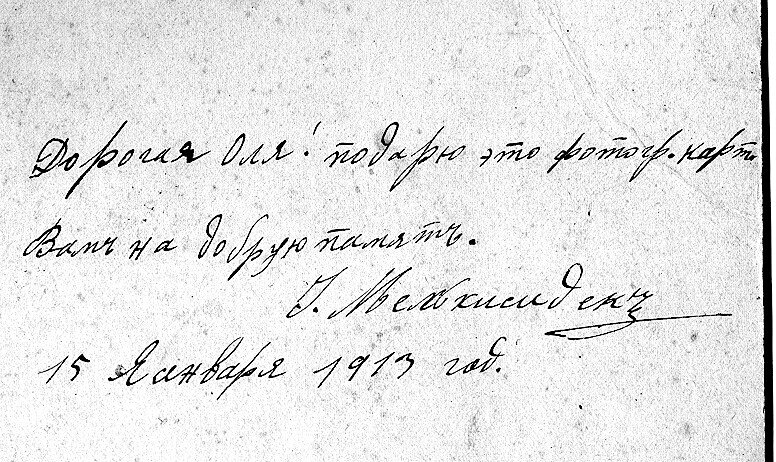 Дорогая Оля! подарю это фотогр. карт.
Вамъ на добрую память.
І. Мелькиседекъ
15 Января 1913 год.